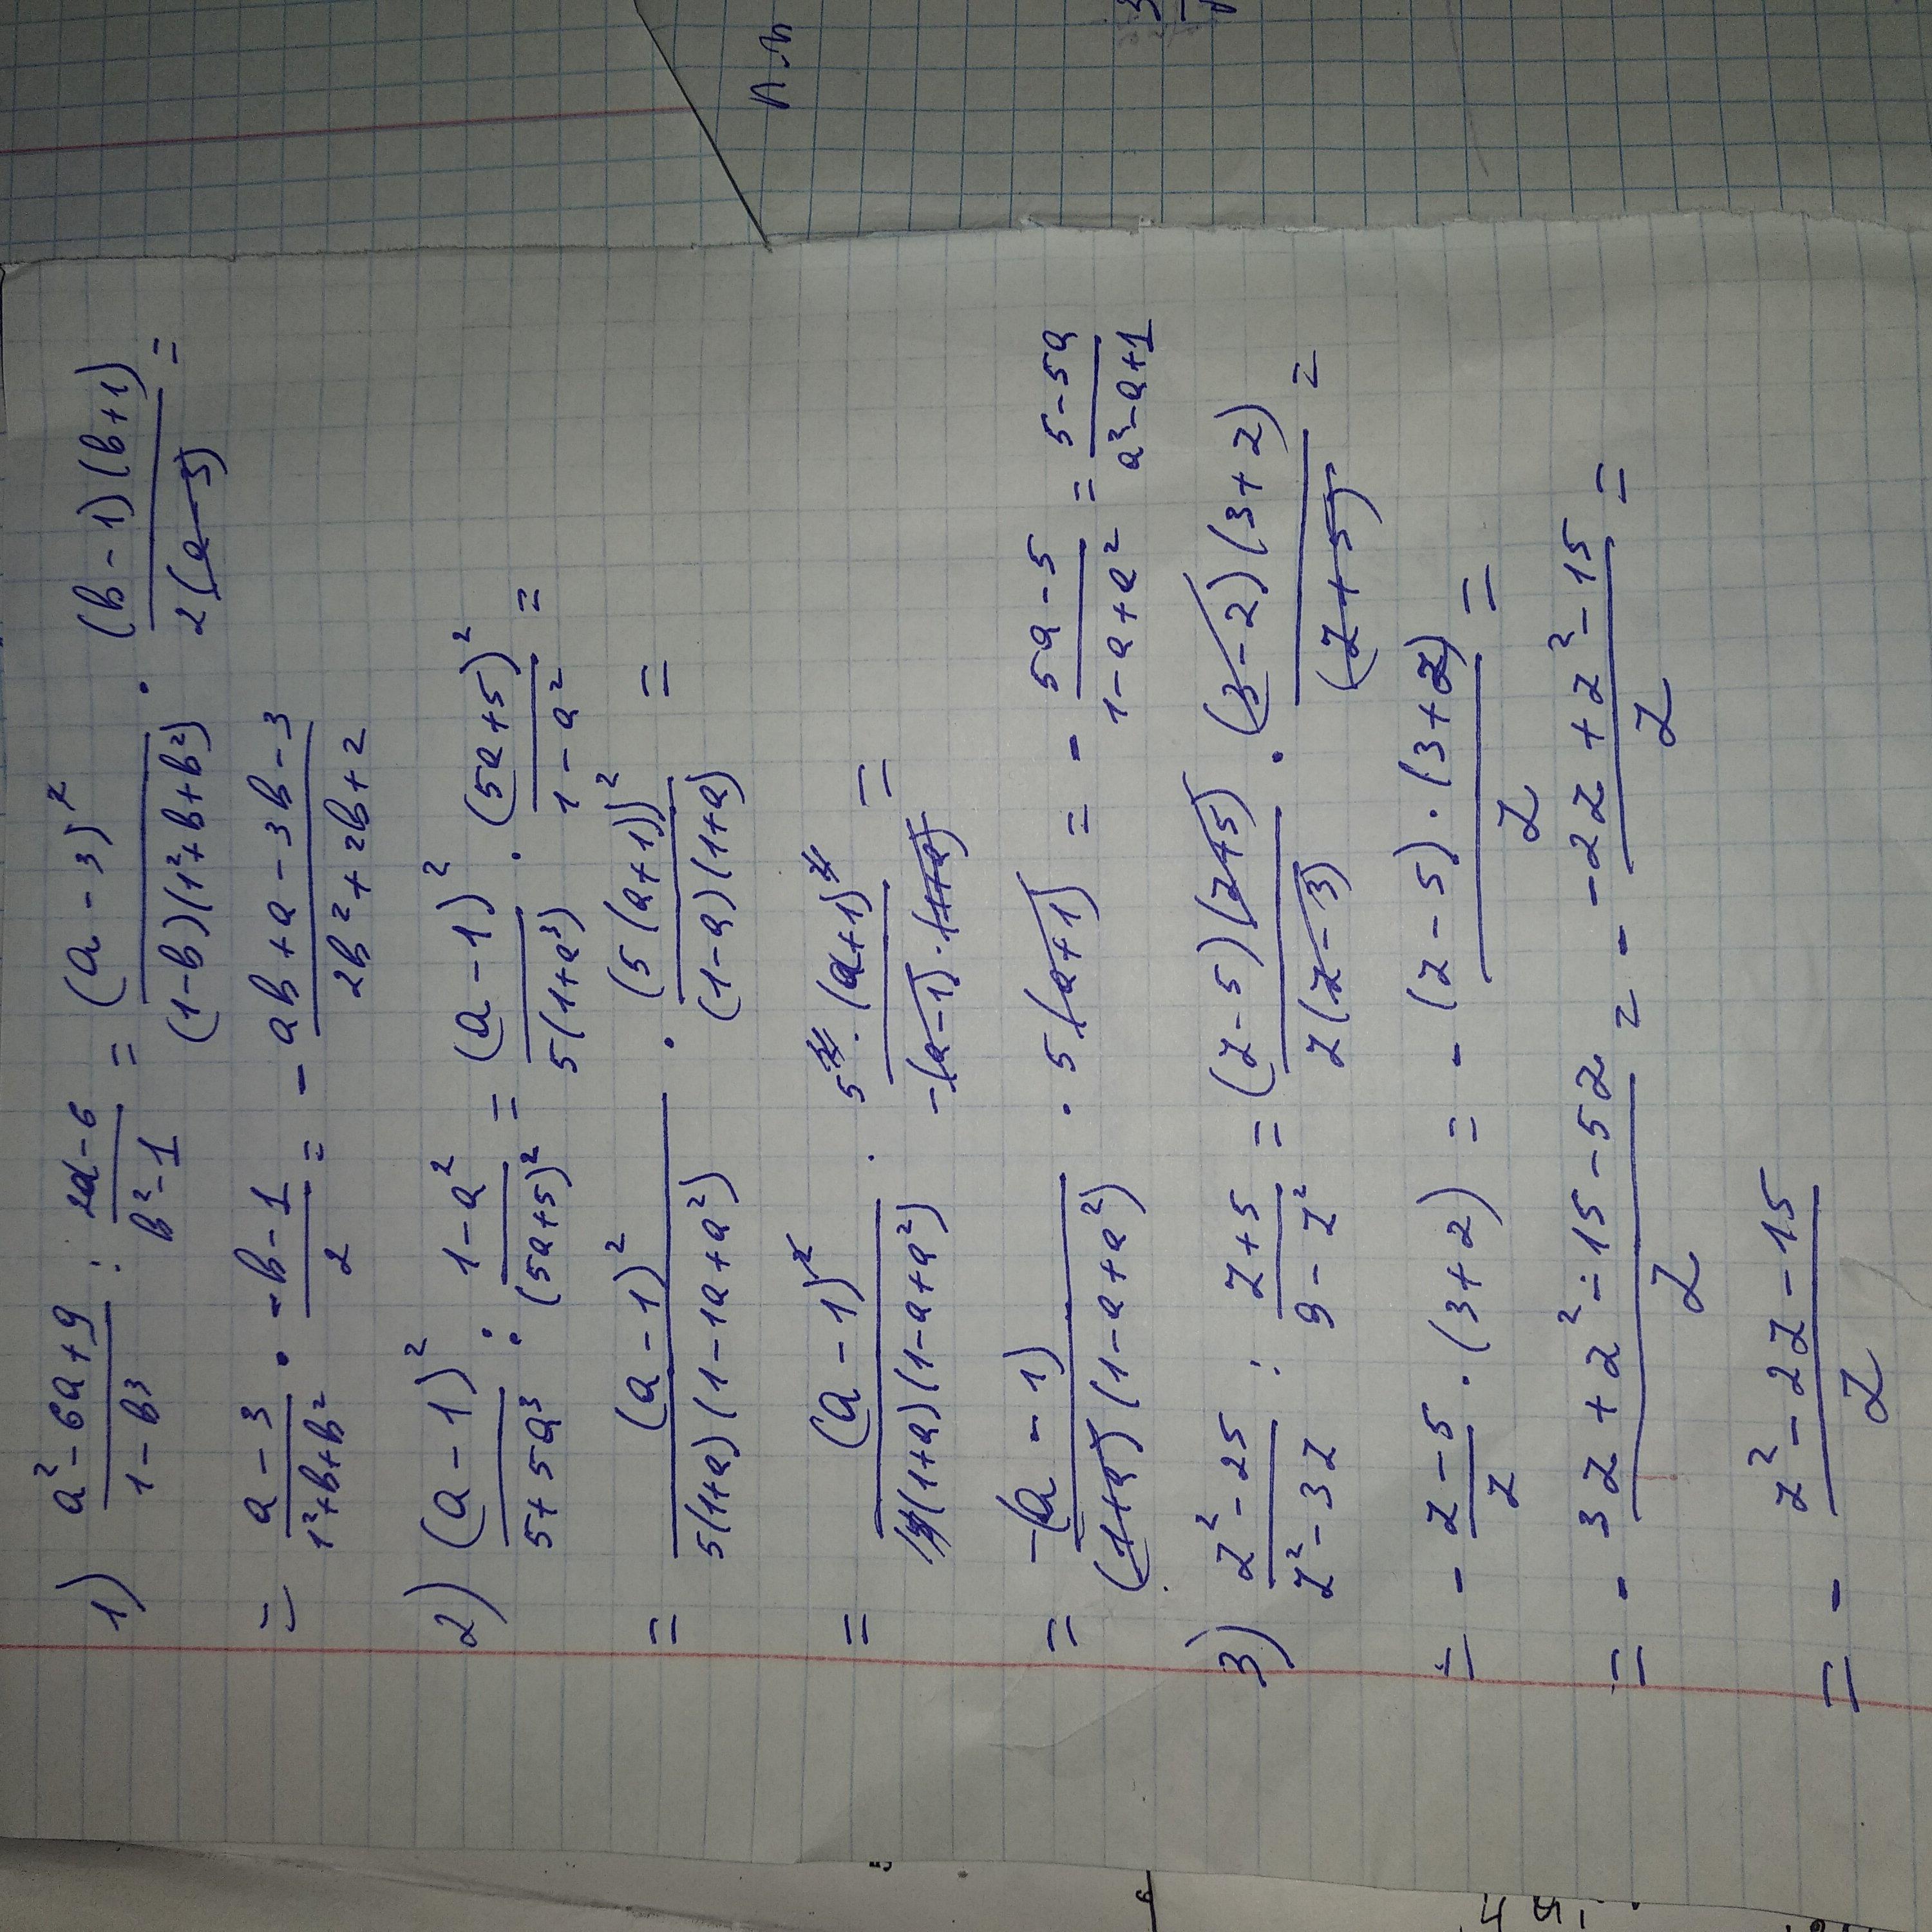 1) (a²-6a+9)/(1-b³) : (2a-6)/(b²-1) = (a-3)²/((1-b)(1²+b+b²)) · ((b-1)(b+1))/(2(a-3)) =
= (a-3)/(1²+b+b²) · (-b-1)/2 = - (ab+a-3b-3)/(2b²+2b+2)
2) (a-1)²/(5+5a³) : (1-a²)/(5a+5)² = (a-1)²/(5(1+a³)) · (5a+5)²/(1-a²) =
= (a-1)²/(5(1+a)(1-1a+a²)) · (5(a+1))²/((1-a)(1+a)) =
= (a-1)²/((1+a)(1-a+a²)) · (5²·(a+1)²)/(-(a-1)·(1+a)) =
= -(a-1)/((1+a)(1-a+a²)) · 5(a+1) = - (5a-5)/(1-a+a²) = (5-5a)/(a²-a+1)
3) (z²-25)/(z²-3z) : (z+5)/(9-z²) = ((z-5)(z+5))/(z(z-3)) · ((3-z)(3+z))/(z+5) =
= - (z-5)/z · (3+z) = - ((z-5)·(3+z))/z =
= - (3z+z²-15-5z)/z = - (-2z+z²-15)/z =
= - (z²-2z-15)/z